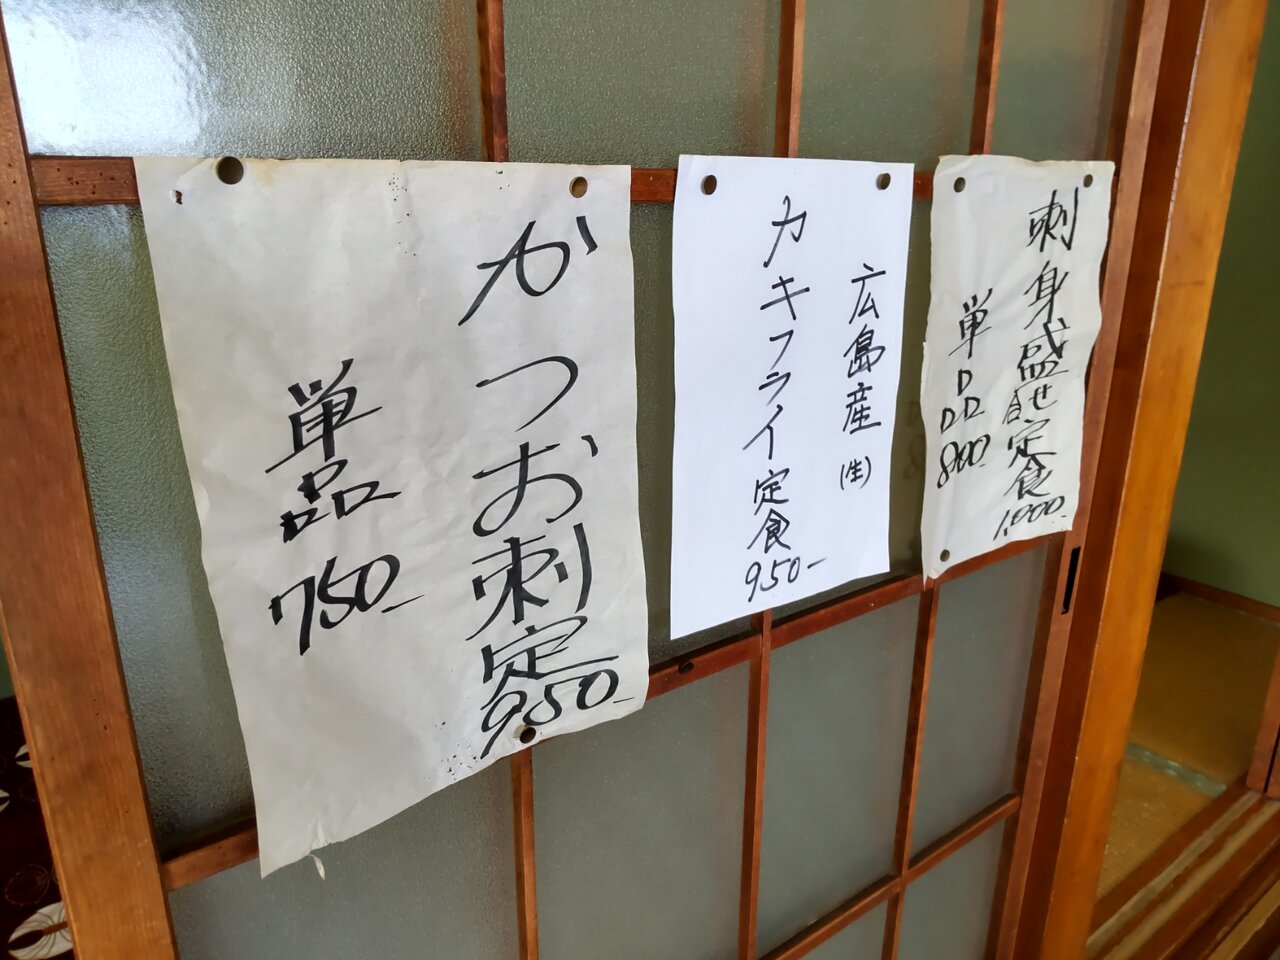 かつお刺定950-
単品750-
広島産(生)
カキフライ定食950-
刺身盛合せ定食1,000-
単品800-